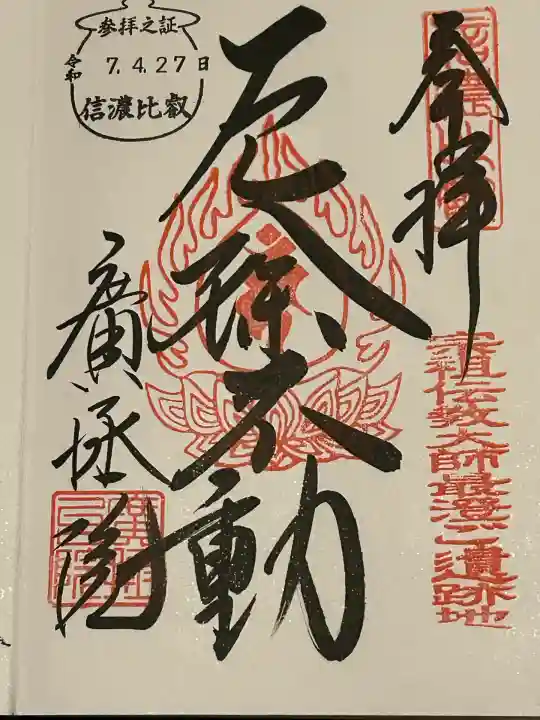 奉拝
信濃比叡
宗祖伝教大師最澄ご遺跡地
厄除不動
参拝之証
令和 7.4.27 日
信濃比叡
廣拯院